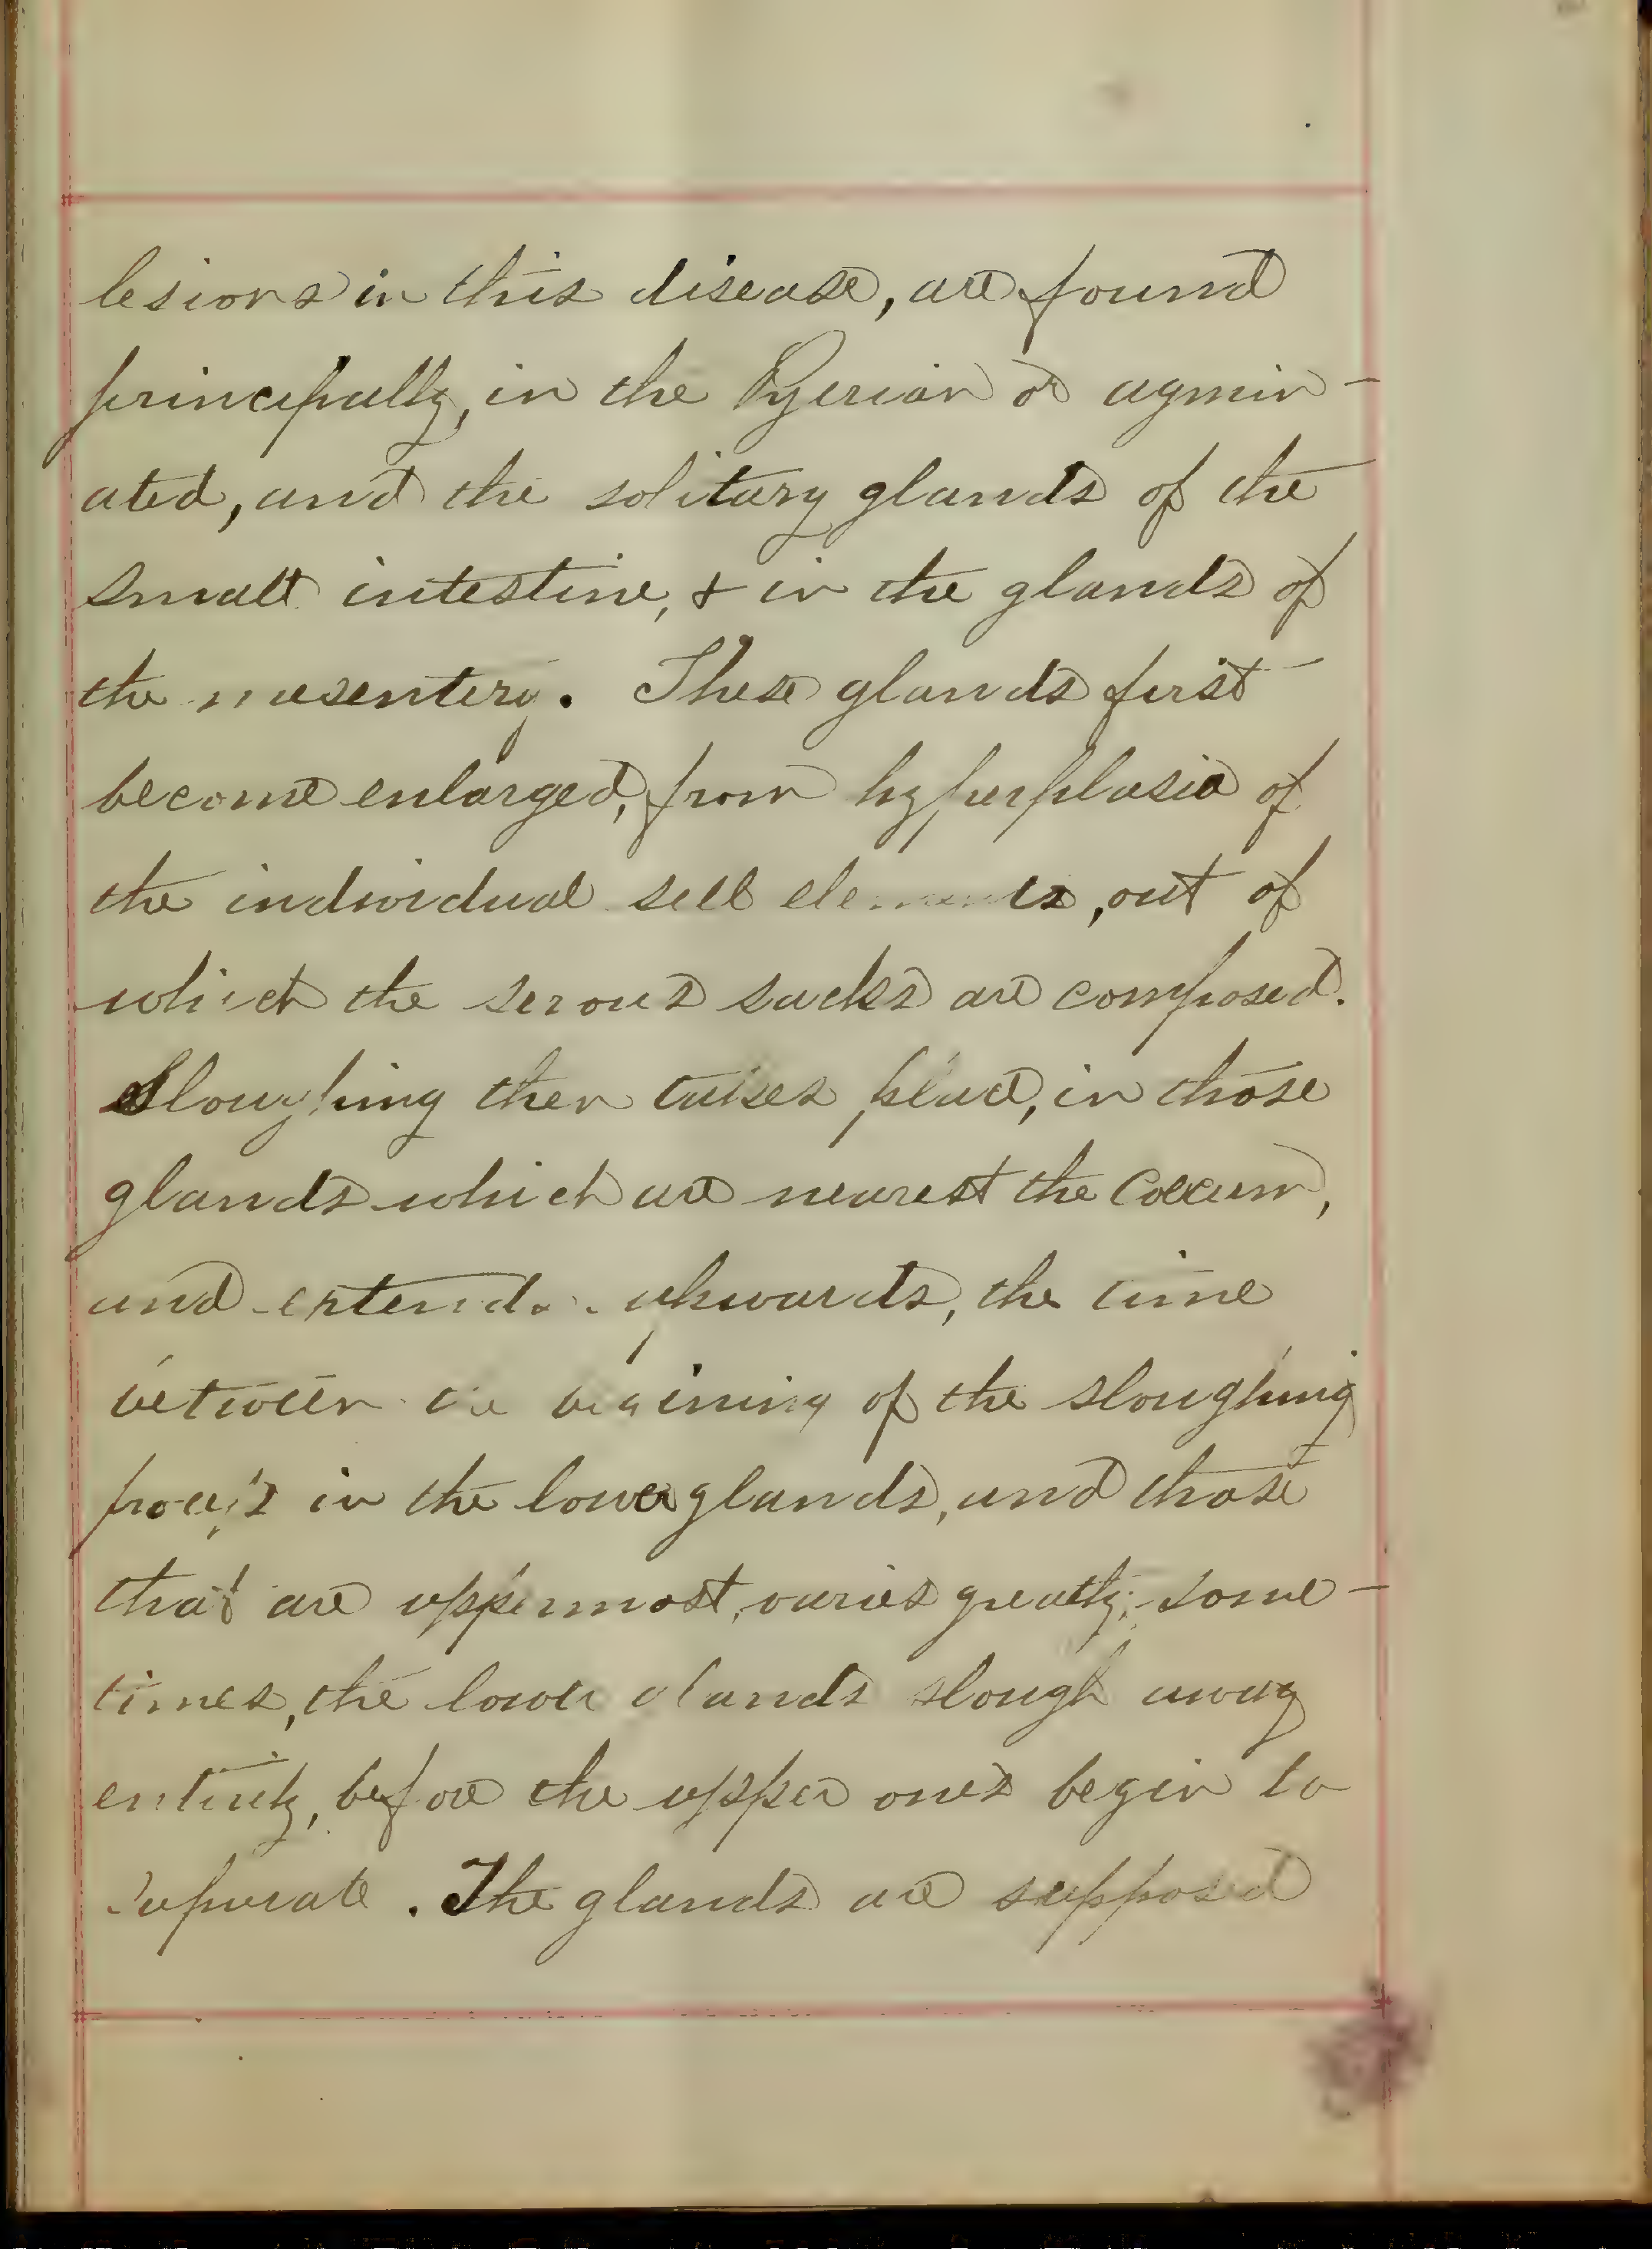 lesions in this disease, are found
principally, in the Pyerian or agmin-
ated, and the solitary glands of the
small intestine, & in the glands of
the mesentery. These glands first
become enlarged, from hyperplasia of
the individual sell elements, out of
which the serous sacks are composed.
Sloughing then takes place, in those
glands which are nearest the Coecum,
and extends upwards, the time
between the begining of the sloughing
process in the lower glands, and those
that are uppermost, varies greatly; some-
times, the lower glands slough away
entirely, before the upper ones begin to
separate. The glands are supposed